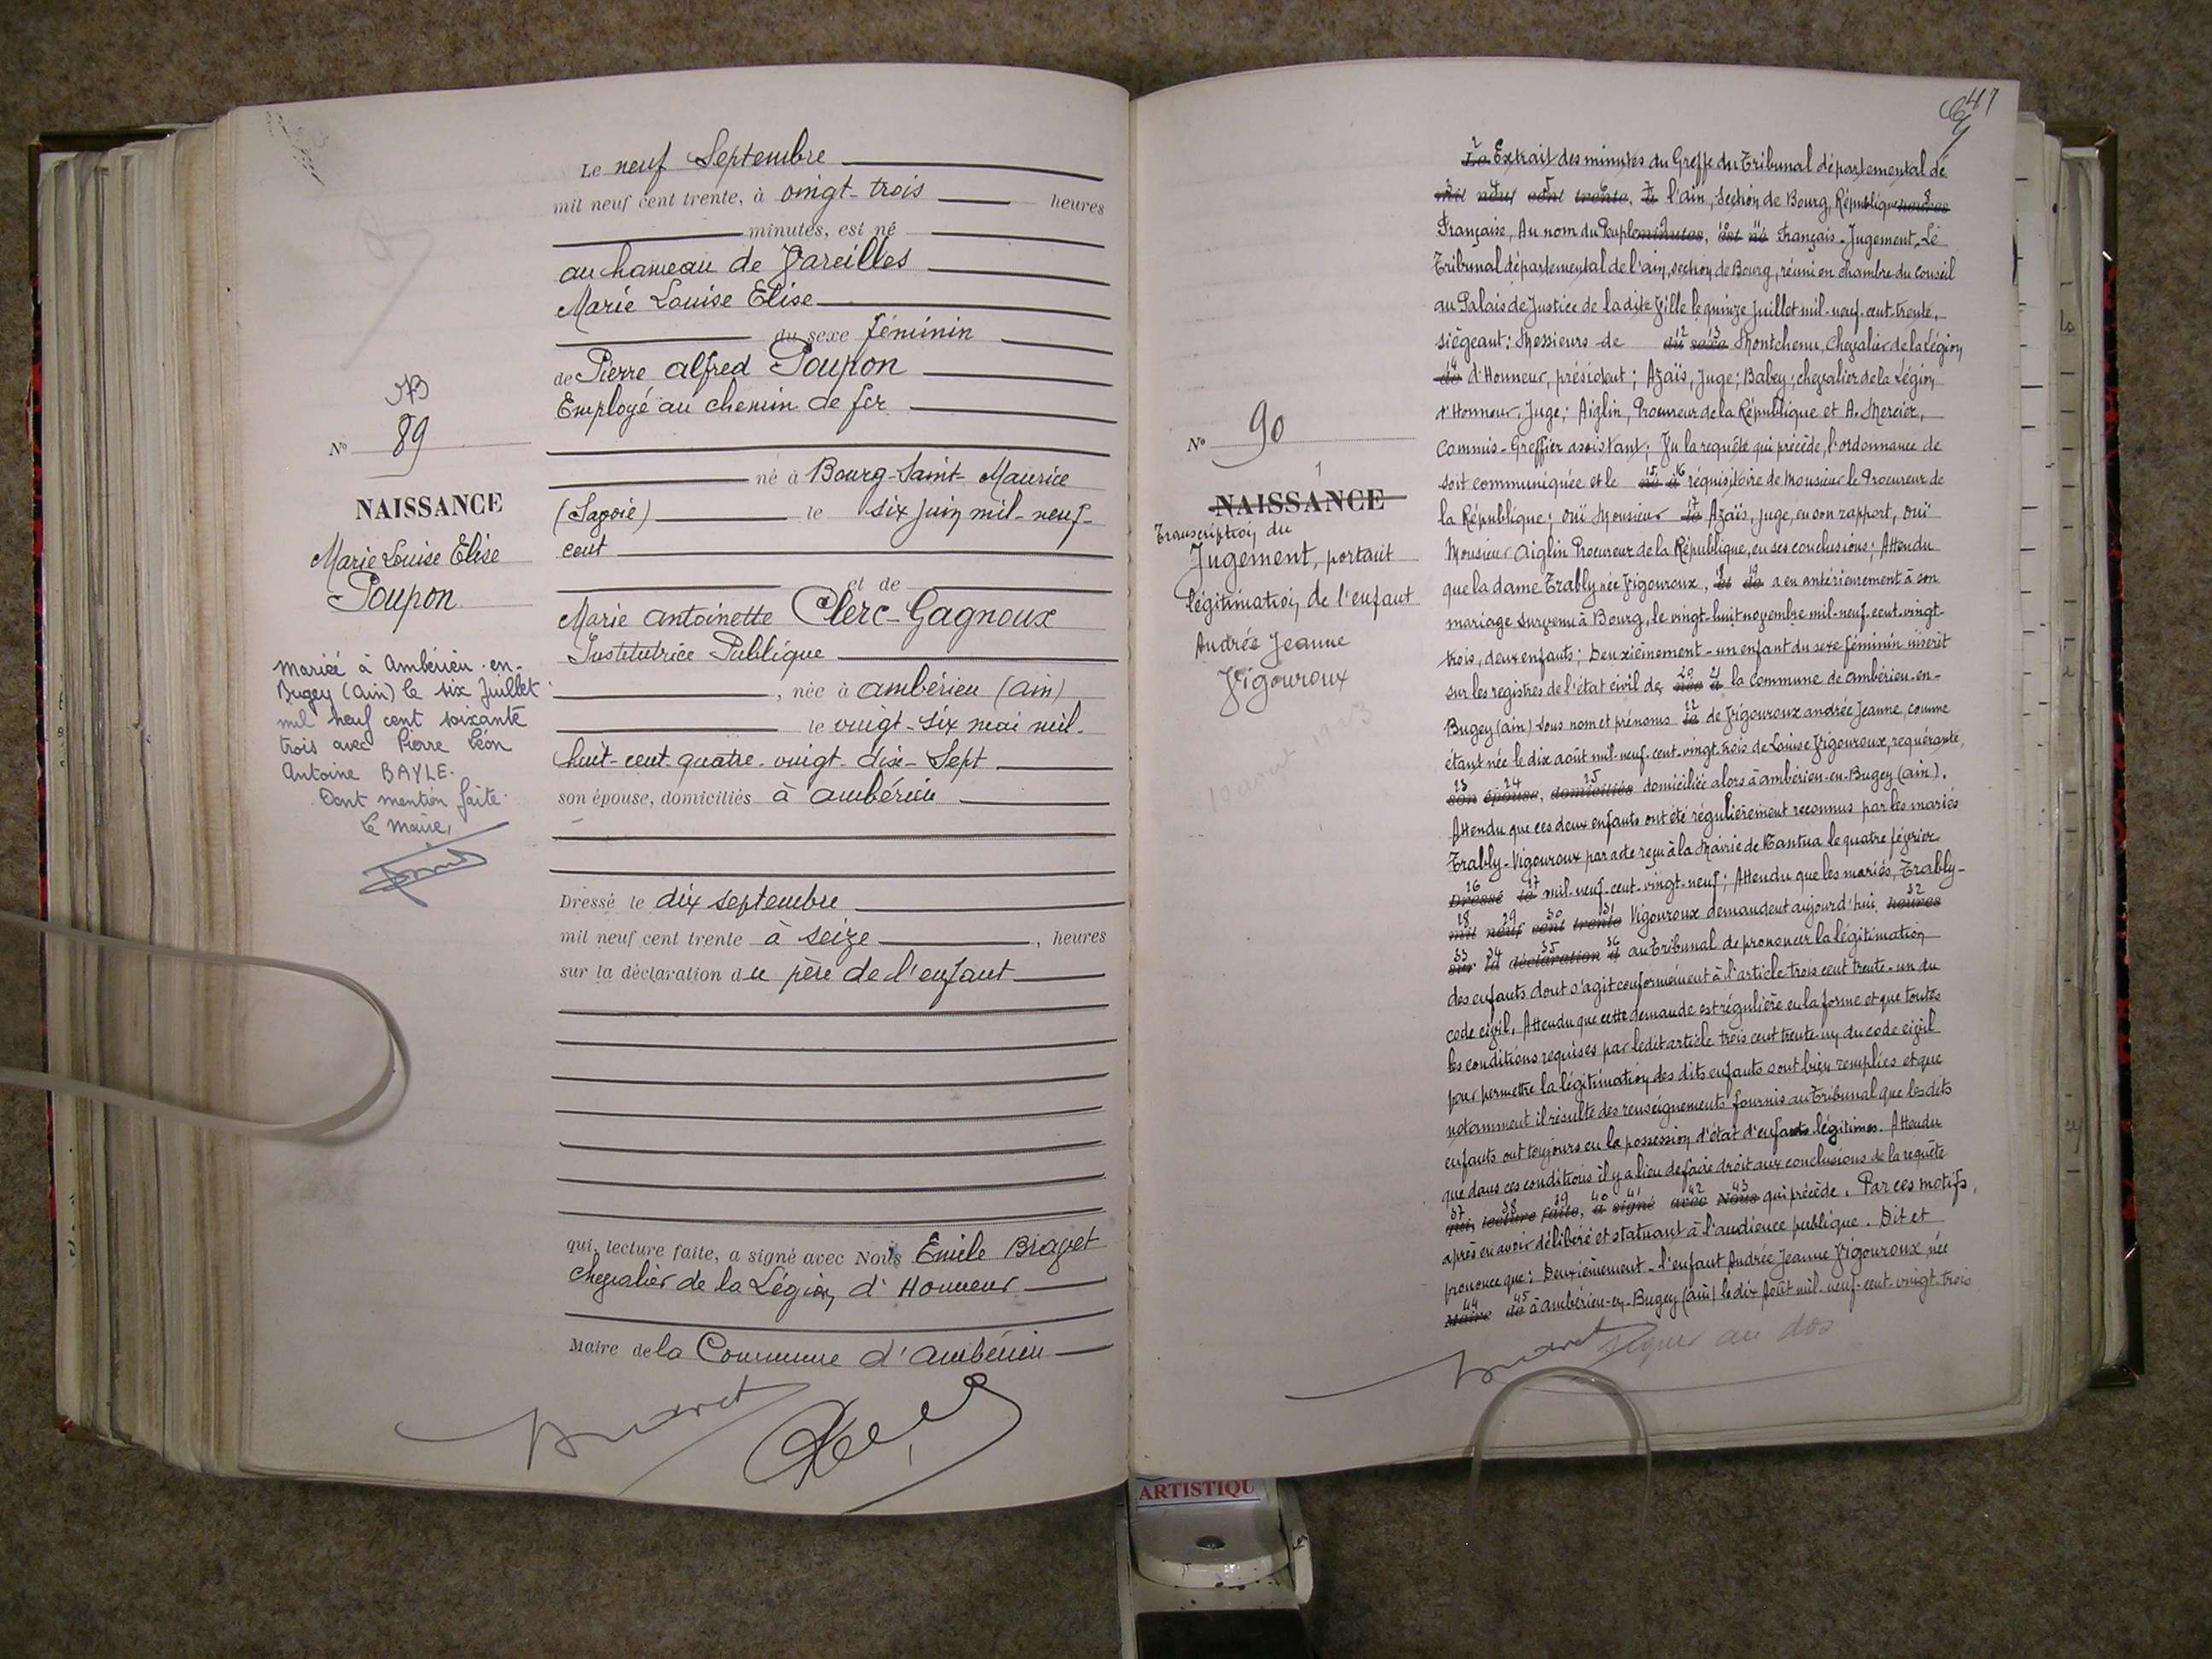 NB
N° 89
NAISSANCE
Marie Louise Elise
Poupon
Mariée à Ambérieu-en-
Bugey (Ain) le six Juillet
mil neuf cent soixante
trois avec Pierre Léon
Antoine BAYLE.
Dont mention faite.
Le Maire,
Le neuf Septembre
mil neuf cent trente, à vingt-trois heures
minutes, est né
au hameau de Vareilles
Marie Louise Elise
du sexe féminin
de Pierre Alfred Poupon
Employé au chemin de fer
né à Bourg-Saint-Maurice
(Savoie) le six Juin mil-neuf-
cent
et de
Marie Antoinette Clerc-Gagnoux
Institutrice Publique
, née à Ambérieu (Ain)
le vingt-six mai mil-
huit-cent-quatre-vingt-dix-Sept
son épouse, domiciliés à Ambérieu
Dressé le dix septembre
mil neuf cent trente à seize , heures
sur la déclaration du père de l'enfant
qui, lecture faite, a signé avec Nous Emile Bravet
chevalier de la Légion d'Honneur
Maire de la Commune d'Ambérieu
Bravet
47
N° 90
1
NAISSANCE
Transcription du
Jugement, portant
légitimation de l'enfant
Andrée Jeanne
Vigouroux
10 août 1923
2 Le Extrait des minutes du Greffe du Tribunal départemental de
mil neuf cent trente, à l'Ain, section de Bourg, République heures
Française, Au nom du Peuple minutes, est né Français. Jugement, Le
Tribunal départemental de l'Ain, section de Bourg, réuni en chambre du conseil
au Palais de Justice de la dite Ville le quinze Juillet mil-neuf-cent-trente,
siègeant: Messieurs de 12 13 du sexe Montchenu, Chevalier de la Légion
14 de d'Honneur, président; Azaïs, Juge; Babey; chevalier de la Légion
d'Honneur, Juge; Aiglin, Procureur de la République et A. Mercier,
Commis-Greffier assistant; Vu la requête qui précède, l'ordonnance de
soit communiquée et le 15 16 né à réquisitoire de Monsieur le Procureur de
la République; Ouï Monsieur 17 le Azaïs, Juge, en son rapport, ouï
Monsieur Aiglin Procureur de la République, en ses conclusions; Attendu
que la dame Trably née Vigouroux, 18 19 et de a eu antérieurement à son
mariage survenu à Bourg, le vingt-huit novembre mil-neuf-cent-vingt-
trois, deux enfants; Deuxièmement - un enfant du sexe féminin inscrit
sur les registres de l'état civil de 20 21 née à la commune de Ambérieu-en-
Bugey (Ain) sous nom et prénoms 22 le de Vigouroux Andrée Jeanne, comme
étant née le dix août mil-neuf-cent-vingt-trois de Louise Vigouroux, requérante,
23 24 25 son épouse, domiciliés domiciliée alors à Ambérieu-en-Bugey (Ain).
Attendu que ces deux enfants ont été régulièrement reconnus par les mariés
Trably-Vigouroux par acte reçu à la Mairie de Nantua le quatre février
26 27 Dressé le mil-neuf-cent-vingt-neuf; Attendu que les mariés, Trably-
28 29 30 31 mil neuf cent trente Vigouroux demandent aujourd'hui 32 heures
33 34 35 36 sur la déclaration d au Tribunal de prononcer la légitimation
des enfants dont s'agit conformément à l'article trois cent trente-un du
code civil. Attendu que cette demande est régulière en la forme et que toutes
les conditions requises par ledit article trois cent trente-un du code civil
pour permettre la légitimation des dits enfants sont bien remplies et que
notamment il résulte des renseignements fournis au Tribunal que les dits
enfants ont toujours eu la possession d'état d'enfants légitimes. Attendu
que dans ces conditions il y a lieu de faire droit aux conclusions de la requête
37 38 39 40 41 42 43 qui, lecture faite, a signé avec Nous qui précède. Par ces motifs,
après en avoir délibéré et statuant à l'audience publique. Dit et
prononce que: Deuxièmement - l'enfant Andrée Jeanne Vigouroux née
44 45 Maire de à Ambérieu-en-Bugey (Ain) le dix Août mil-neuf-cent-vingt-trois
Bravet signé au dos
ARTISTIQU